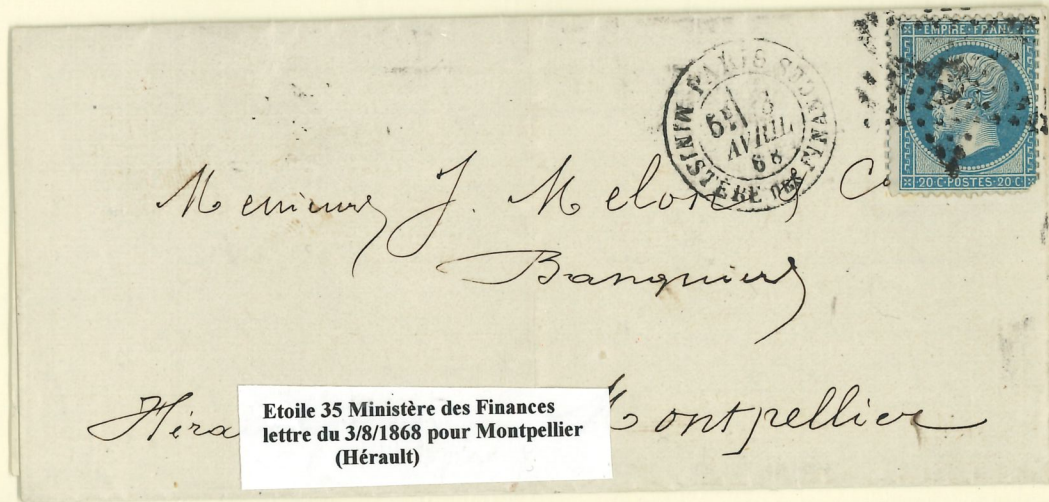 EMPIRE FRANC
20 C · POSTES · 20 C
PARIS
MINISTÈRE DES FINANCES
AVRIL
68
Messieurs J. C
Banquiers
Héra Montpellier
Etoile 35 Ministère des Finances
lettre du 3/8/1868 pour Montpellier
(Hérault)